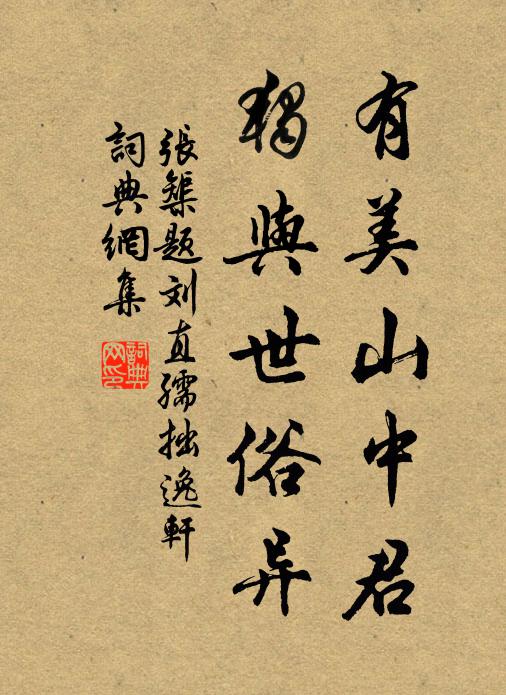 有美山中君
獨與世俗异
張榘题刘直孺拙逸軒
詞典網集
詞典網印